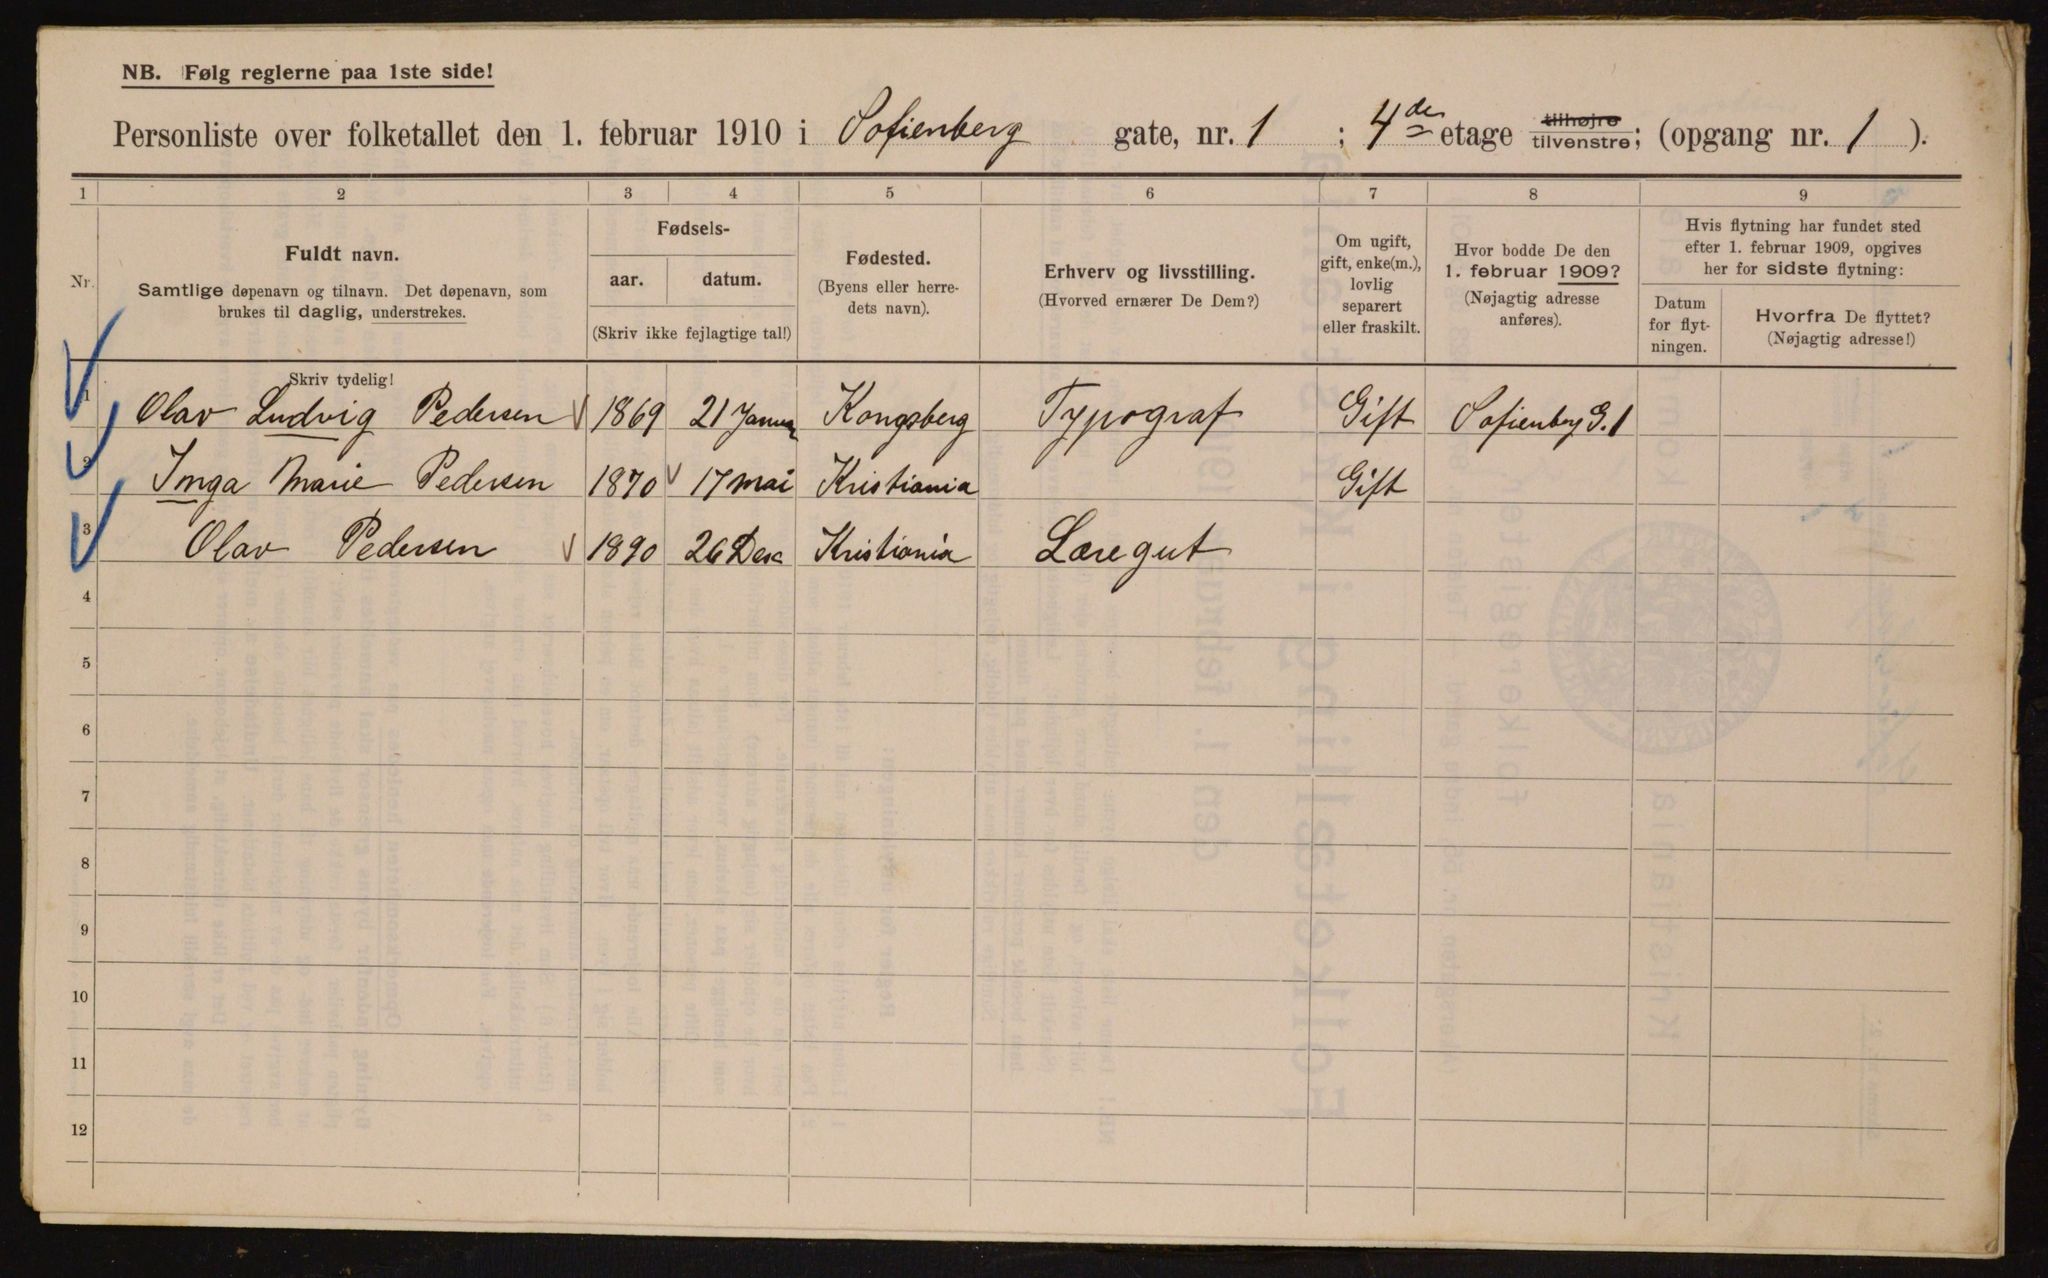 NB. Følg reglerne paa 1ste side!
Personliste over folketallet den 1. februar 1910 i Sofienberg gate, nr. 1 ; 4de etage tilhøjre tilvenstre; (opgang nr. 1 ).
1 2 3 4 5 6 7 8 9
Nr.
Fuldt navn.
Samtlige døpenavn og tilnavn. Det døpenavn, som
brukes til daglig, understrekes.
Skriv tydelig!
Fødsels-
aar. datum.
(Skriv ikke fejlagtige tal!)
Fødested.
(Byens eller herre-
dets navn).
Erhverv og livsstilling.
(Hvorved ernærer De Dem?)
Om ugift,
gift, enke(m.),
lovlig
separert
eller fraskilt.
Hvor bodde De den
1. februar 1909?
(Nøjagtig adresse
anføres).
Hvis flytning har fundet sted
efter 1. februar 1909, opgives
her for sidste flytning:
Datum
for flyt-
ningen.
Hvorfra De flyttet?
(Nøjagtig adresse!)
1 Olav Ludvig Pedersen 1869 21 Januar Kongsberg Typograf Gift Sofienberg G. 1
2 Inga Marie Pedersen 1870 17 mai Kristiania Gift
3 Olav Pedersen 1890 26 Des Kristiania Læregut
4
5
6
7
8
9
10
11
12